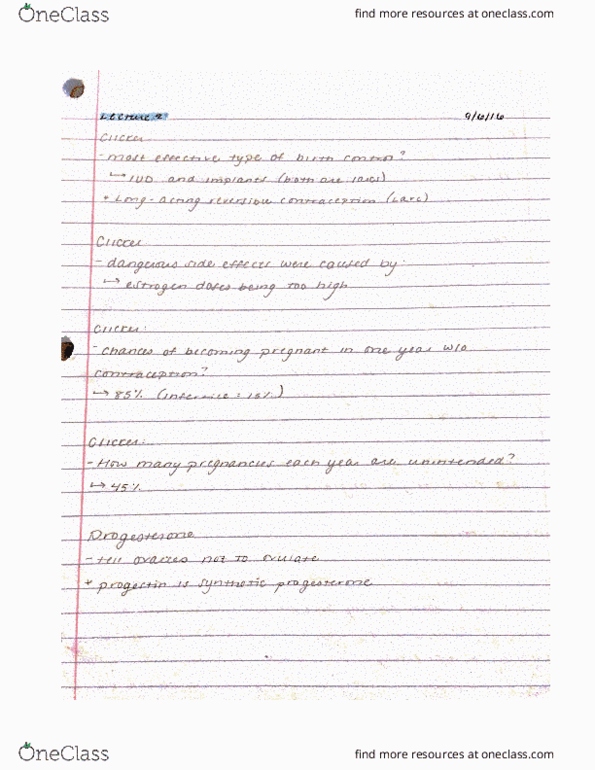 OneClass
find more resources at oneclass.com
Lecture 2
9/6/16
Clicker
- most effective type of birth control?
↳ IUD and implants (both are larcs)
* Long-acting reversible contraception (Larc)
Clicker
- dangerous side effects were caused by:
↳ estrogen doses being too high
Clicker:
- chances of becoming pregnant in one year w/o
contraception?
↳ 85% (infertile: 15%)
Clicker:
- How many pregnancies each year are unintended?
↳ 45%
Progesterone
- tell ovaries not to ovulate
* progestin is synthetic progesterone
OneClass
find more resources at oneclass.com